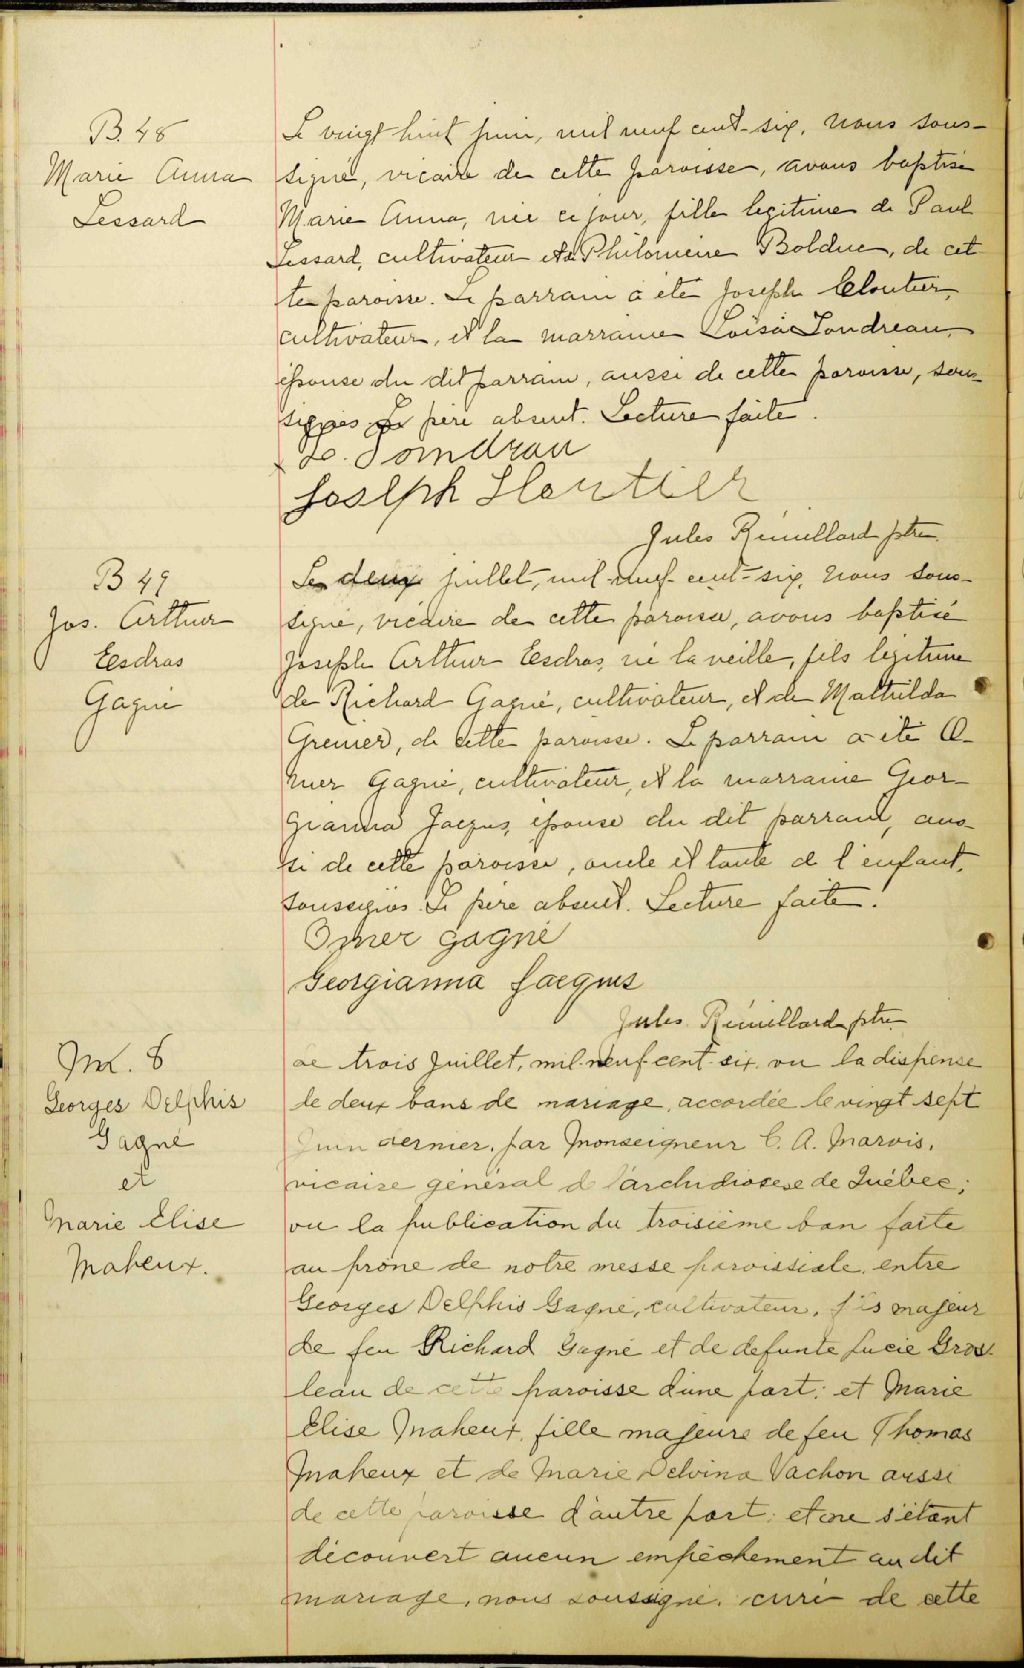 B. 48
Marie Anna
Lessard
Le vingt huit juin, mil neuf cent-six, nous sous-
signé, vicaire de cette paroisse, avons baptisé
Marie Anna, née ce jour, fille legitime de Paul
Lessard, cultivateur et de Philomène Bolduc, de cet-
te paroisse. Le parrain a été Joseph Cloutier,
cultivateur, et la marraine Loïsa Tondreau,
épouse du dit parrain, aussi de cette paroisse, sous-
signés. Le père absent. Lecture faite.
L. Tomdrau
Joseph Cloutier
Jules Rémillard ptre
B 49
Jos. Arthur
Esdras
Gagné
Le deux juillet, mil neuf-cent-six, nous sous-
signé, vicaire de cette paroisse, avons baptisé
Joseph Arthur Esdras, né la veille, fils légitime
de Richard Gagné, cultivateur, et de Mathilda
Grenier, de cette paroisse. Le parrain a été O-
mer Gagné, cultivateur, et la marraine Geor-
gianna Jacques, épouse du dit parrain, aus-
si de cette paroisse, oncle et tante de l'enfant,
soussignés. Le père absent. Lecture faite.
Omer Gagné
Georgianna Jacques
Jules Rémillard ptre
M. 8
Georges Delphis
Gagné
et
Marie Elise
Maheux.
Le trois Juillet, mil-neuf-cent-six, vu la dispense
de deux bans de mariage, accordée le vingt sept
Juin dernier, par Monseigneur C. A. Marois,
vicaire général de l'archidiocèse de Québec;
vu la publication du troisième ban faite
au prône de notre messe paroissiale, entre
Georges Delphis Gagné, cultivateur, fils majeur
de feu Richard Gagné et de defunte Lucie Gros-
leau de cette paroisse d'une part; et Marie
Elise Maheux, fille majeure de feu Thomas
Maheux et de Marie Delvina Vachon aussi
de cette paroisse d'autre part; et ne s'étant
découvert aucun empêchement au dit
mariage, nous soussigné, curé de cette